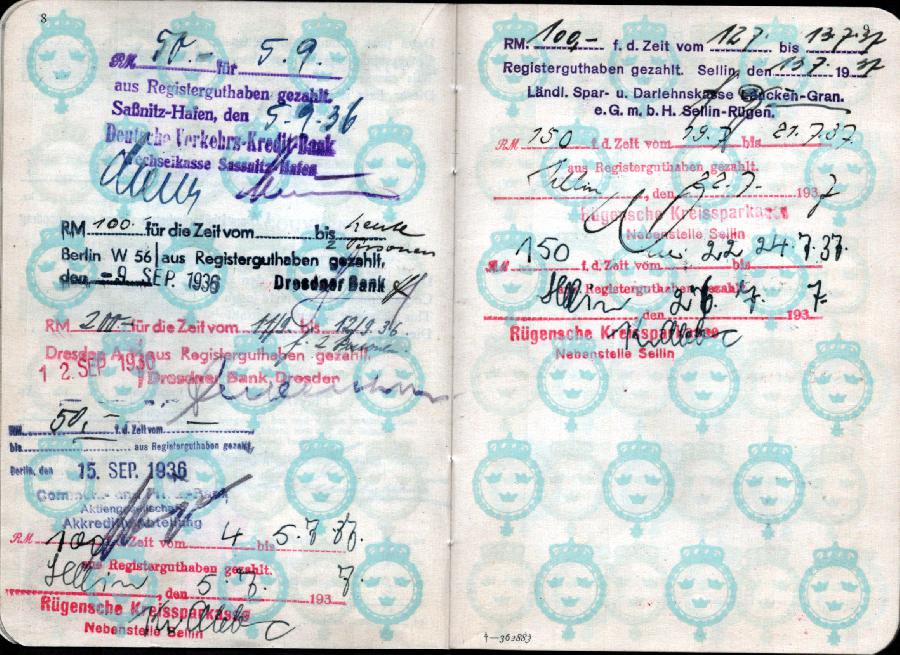 8
RM 50.- für 5.9.
aus Registerguthaben gezahlt.
Saßnitz-Hafen, den 5.9.36
Deutsche Verkehrs-Kredit-Bank
Wechselkasse Sassnitz-Hafen
RM 100.- für die Zeit vom bis heute
2 Personen
Berlin W 56 aus Registerguthaben gezahlt,
den -9. SEP. 1936 Dresdner Bank
RM 200.- für die Zeit vom 11/9. bis 12/9.36
f. 2
Dresden A, aus Registerguthaben gezahlt.
12. SEP. 1936 Dresdner Bank, Dresden
RM 50,- f.d. Zeit vom
bis aus Registerguthaben gezahlt,
Berlin, den 15. SEP. 1936
Commerz- und Privat-Bank
Aktiengesellschaft
Akkreditiv-Abteilung
RM 100 f.d. Zeit vom 4 bis 5.7.37.
aus Registerguthaben gezahlt.
Sellin, den 5.7. 1937.
Rügensche Kreissparkasse
Nebenstelle Sellin
9
RM. 100,- f. d. Zeit vom 12.7. bis 13.7.37
Registerguthaben gezahlt. Sellin, den 13.7. 1937
Ländl. Spar- u. Darlehnskasse Lancken-Gran.
e.G.m.b.H. Sellin-Rügen.
RM 150 f.d. Zeit vom 19.7. bis 21.7.37.
aus Registerguthaben gezahlt.
Sellin, den 22.7. 1937
Rügensche Kreissparkasse
Nebenstelle Sellin
RM 150 f.d. Zeit vom 22 bis 24.7.37.
aus Registerguthaben gezahlt.
Sellin, den 7. 1937.
Rügensche Kreissparkasse
Nebenstelle Sellin
4-362883